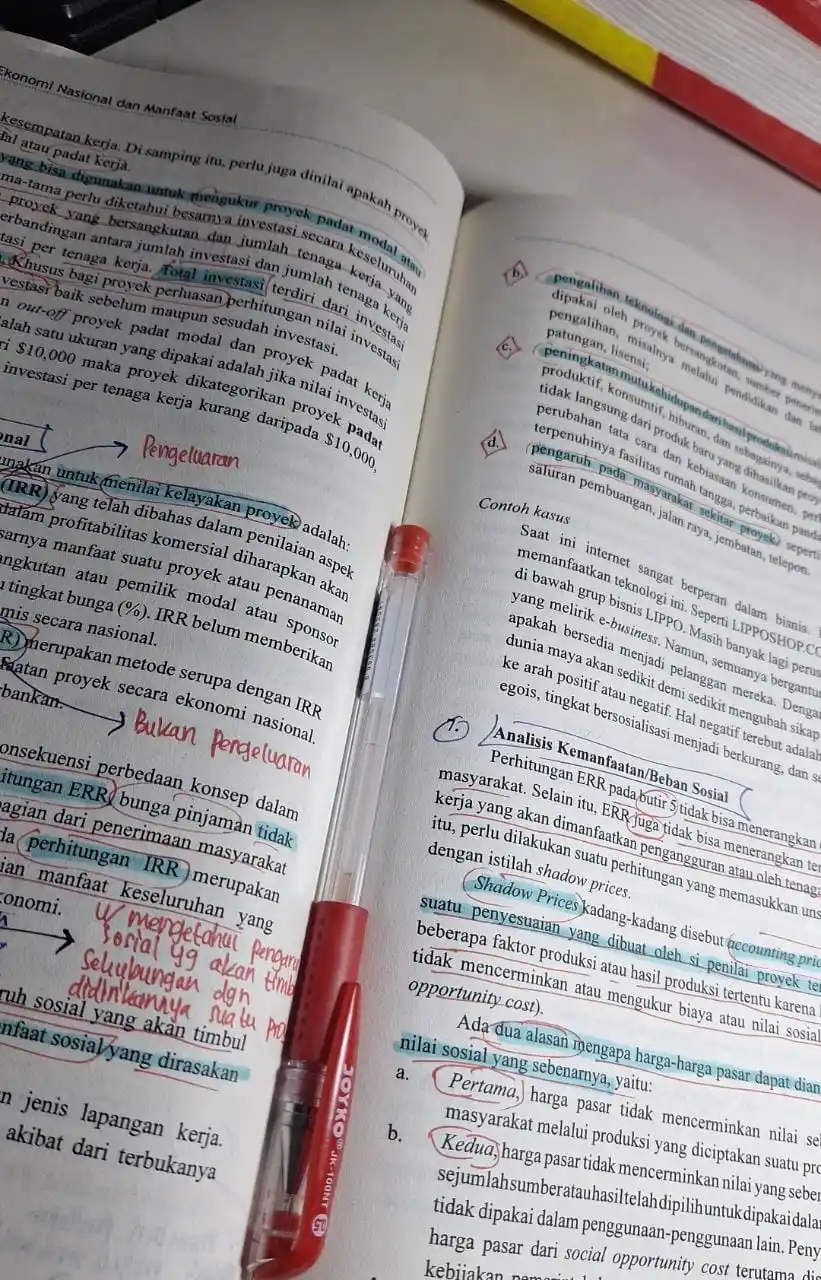 Ekonomi Nasional dan Manfaat Sosial
kesempatan kerja. Di samping itu, perlu juga dinilai apakah proyek
atau padat kerja.
yang bisa digunakan untuk mengukur proyek padat modal atau
ma-tama perlu diketahui besarnya investasi secara keseluruhan
proyek yang bersangkutan dan jumlah tenaga kerja yang
erbandingan antara jumlah investasi dan jumlah tenaga kerja
tasi per tenaga kerja. Total investasi terdiri dari investasi
Khusus bagi proyek perluasan perhitungan nilai investasi
vestasi baik sebelum maupun sesudah investasi.
n out-off proyek padat modal dan proyek padat kerja
alah satu ukuran yang dipakai adalah jika nilai investasi
ri $10,000 maka proyek dikategorikan proyek padat
investasi per tenaga kerja kurang daripada $10,000,
onal
Pengeluaran
unakan untuk menilai kelayakan proyek adalah:
(IRR) yang telah dibahas dalam penilaian aspek
dalam profitabilitas komersial diharapkan akan
sarnya manfaat suatu proyek atau penanaman
angkutan atau pemilik modal atau sponsor
tingkat bunga (%). IRR belum memberikan
mis secara nasional.
R) merupakan metode serupa dengan IRR
faatan proyek secara ekonomi nasional.
bankan.
Bukan Pengeluaran
onsekuensi perbedaan konsep dalam
itungan ERR bunga pinjaman tidak
agian dari penerimaan masyarakat
da perhitungan IRR merupakan
ian manfaat keseluruhan yang
konomi.
U/ mengetahui pengaru
sosial yg akan timb
Sehubungan dgn
didirikannya suatu pro
ruh sosial yang akan timbul
nfaat sosial yang dirasakan
n jenis lapangan kerja.
akibat dari terbukanya
JOYKO® JK-100NT
b. pengalihan teknologi dan pengetahuan yang
dipakai oleh proyek bersangkutan, sumber
pengalihan, misalnya melalui pendidikan dan
patungan, lisensi;
c. peningkatan mutu kehidupan dari hasil produksi
produktif, konsumtif, hiburan, dan sebagainya,
tidak langsung dari produk baru yang dihasilkan proy
perubahan tata cara dan kebiasaan konsumen,
terpenuhinya fasilitas rumah tangga, perbaikan
d. pengaruh pada masyarakat sekitar proyek, seperti
saluran pembuangan, jalan raya, jembatan, telepon.
Contoh kasus
Saat ini internet sangat berperan dalam bisnis.
memanfaatkan teknologi ini. Seperti LIPPOSHOP.CO
di bawah grup bisnis LIPPO. Masih banyak lagi perus
yang melirik e-business. Namun, semuanya bergantu
apakah bersedia menjadi pelanggan mereka. Denga
dunia maya akan sedikit demi sedikit mengubah sikap
ke arah positif atau negatif. Hal negatif terebut adalah
egois, tingkat bersosialisasi menjadi berkurang, dan se
7. Analisis Kemanfaatan/Beban Sosial
Perhitungan ERR pada butir 5 tidak bisa menerangkan
masyarakat. Selain itu, ERR juga tidak bisa menerangkan ter
kerja yang akan dimanfaatkan pengangguran atau oleh tenaga
itu, perlu dilakukan suatu perhitungan yang memasukkan uns
dengan istilah shadow prices.
Shadow Prices kadang-kadang disebut accounting pric
suatu penyesuaian yang dibuat oleh si penilai proyek ter
beberapa faktor produksi atau hasil produksi tertentu karena
tidak mencerminkan atau mengukur biaya atau nilai sosial
opportunity cost).
Ada dua alasan mengapa harga-harga pasar dapat dian
nilai sosial yang sebenarnya, yaitu:
a. Pertama, harga pasar tidak mencerminkan nilai se
masyarakat melalui produksi yang diciptakan suatu pro
b. Kedua, harga pasar tidak mencerminkan nilai yang seber
sejumlah sumber atau hasil telah dipilih untuk dipakai dala
tidak dipakai dalam penggunaan-penggunaan lain. Peny
harga pasar dari social opportunity cost terutama di
kebijakan